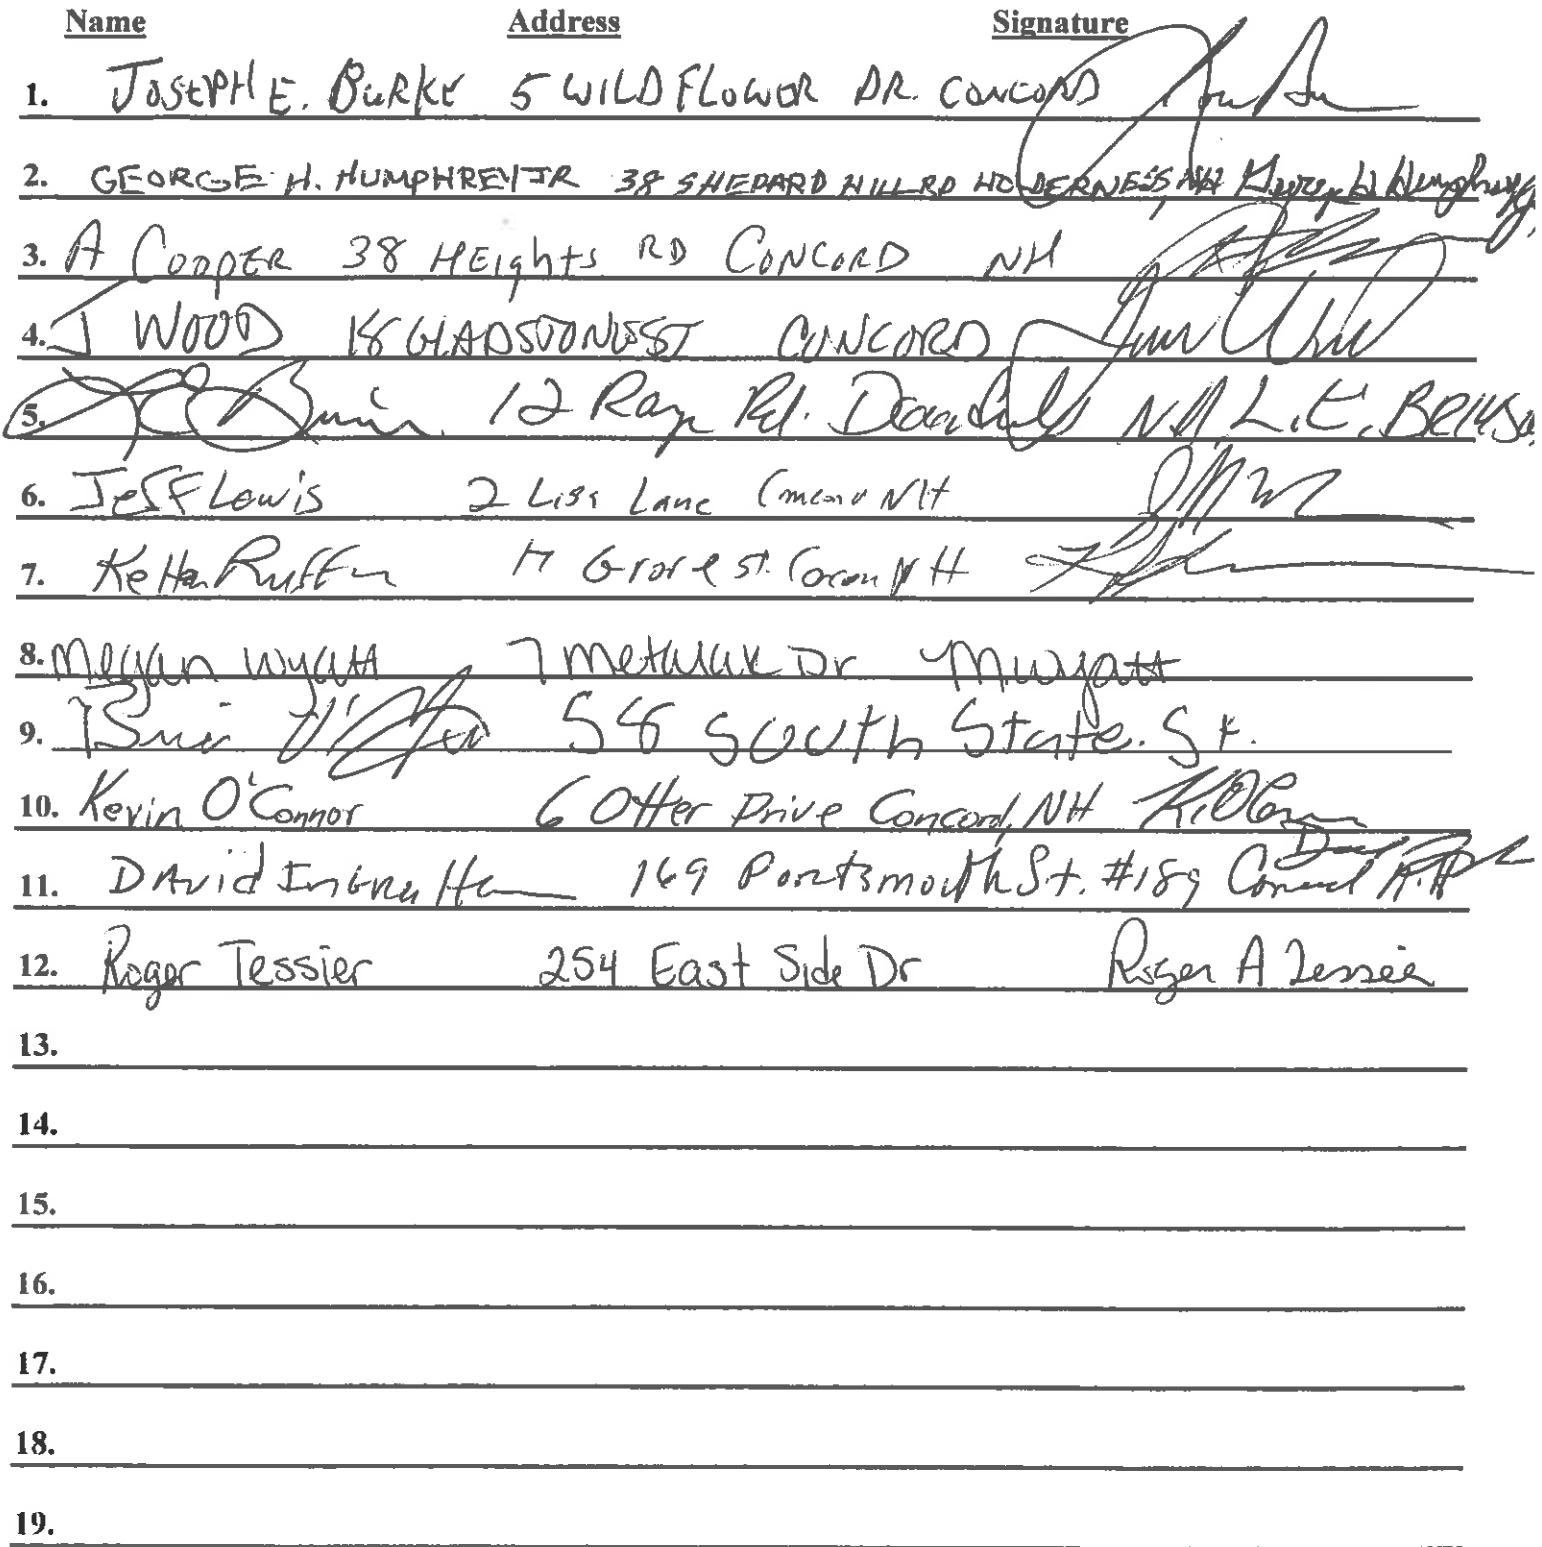 Name Address Signature
1. JOSEPH E. BURKE 5 WILDFLOWER DR. CONCORD
2. GEORGE H. HUMPHREY JR 38 SHEPARD HILL RD HOLDERNESS, NH George H Humphrey Jr.
3. A COOPER 38 HEIghts RD CONCORD NH
4. J WOOD 18 GLADSTONE ST CONCORD
5. 12 Ray Rd. NH. L.E.
6. Jeff Lewis 2 Lisa Lane Concord NH
7. Grove st. NH
8. Megan Wyatt 7 Metalak Dr MWyatt
9. Brian 58 South State. St.
10. Kevin O'Connor 6 Otter Drive Concord, NH K. O'Connor
11. DAvid 169 Portsmouth St. #189 Concord
12. Roger Tessier 254 East Side Dr Roger A Tessier
13.
14.
15.
16.
17.
18.
19.